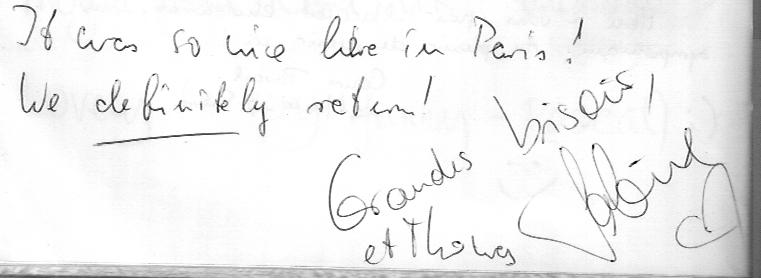 It was so nice here in Paris!
We definitely return!
Grandes bisous,
Sabine
et Thomas